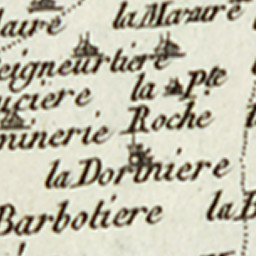 laire
la Mazure
eigneurtiere
uciere
la pte
Roche
minerie
la Dortniere
Barbotiere
la B